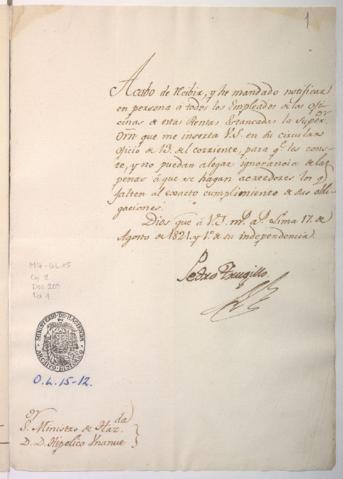 1
Acabo de recibir, y he mandado notificar
en persona a todos los Empleados de las Ofi-
cinas de estas Rentas Estancadas la Supor.
Orn. que me inserta V.S. en su circular
Oficio de 13. del corriente, para q.e les cons-
te, y no puedan alegar ignorancia de las
penas á que se hagan acreedores los q.e
falten al exacto cumplimiento de sus obli-
gaciones.
Dios gue. á V.S. m.s a.s Lima 17. de
Agosto de 1821. y 1.o de su independencia.
Pedro Trujillo
MH-OL 15
Doc 209
MINISTERIO DE HACIENDA
O.L. 15-12.
S.or Ministro de Haz.da
D. D. Hipolito Unanue